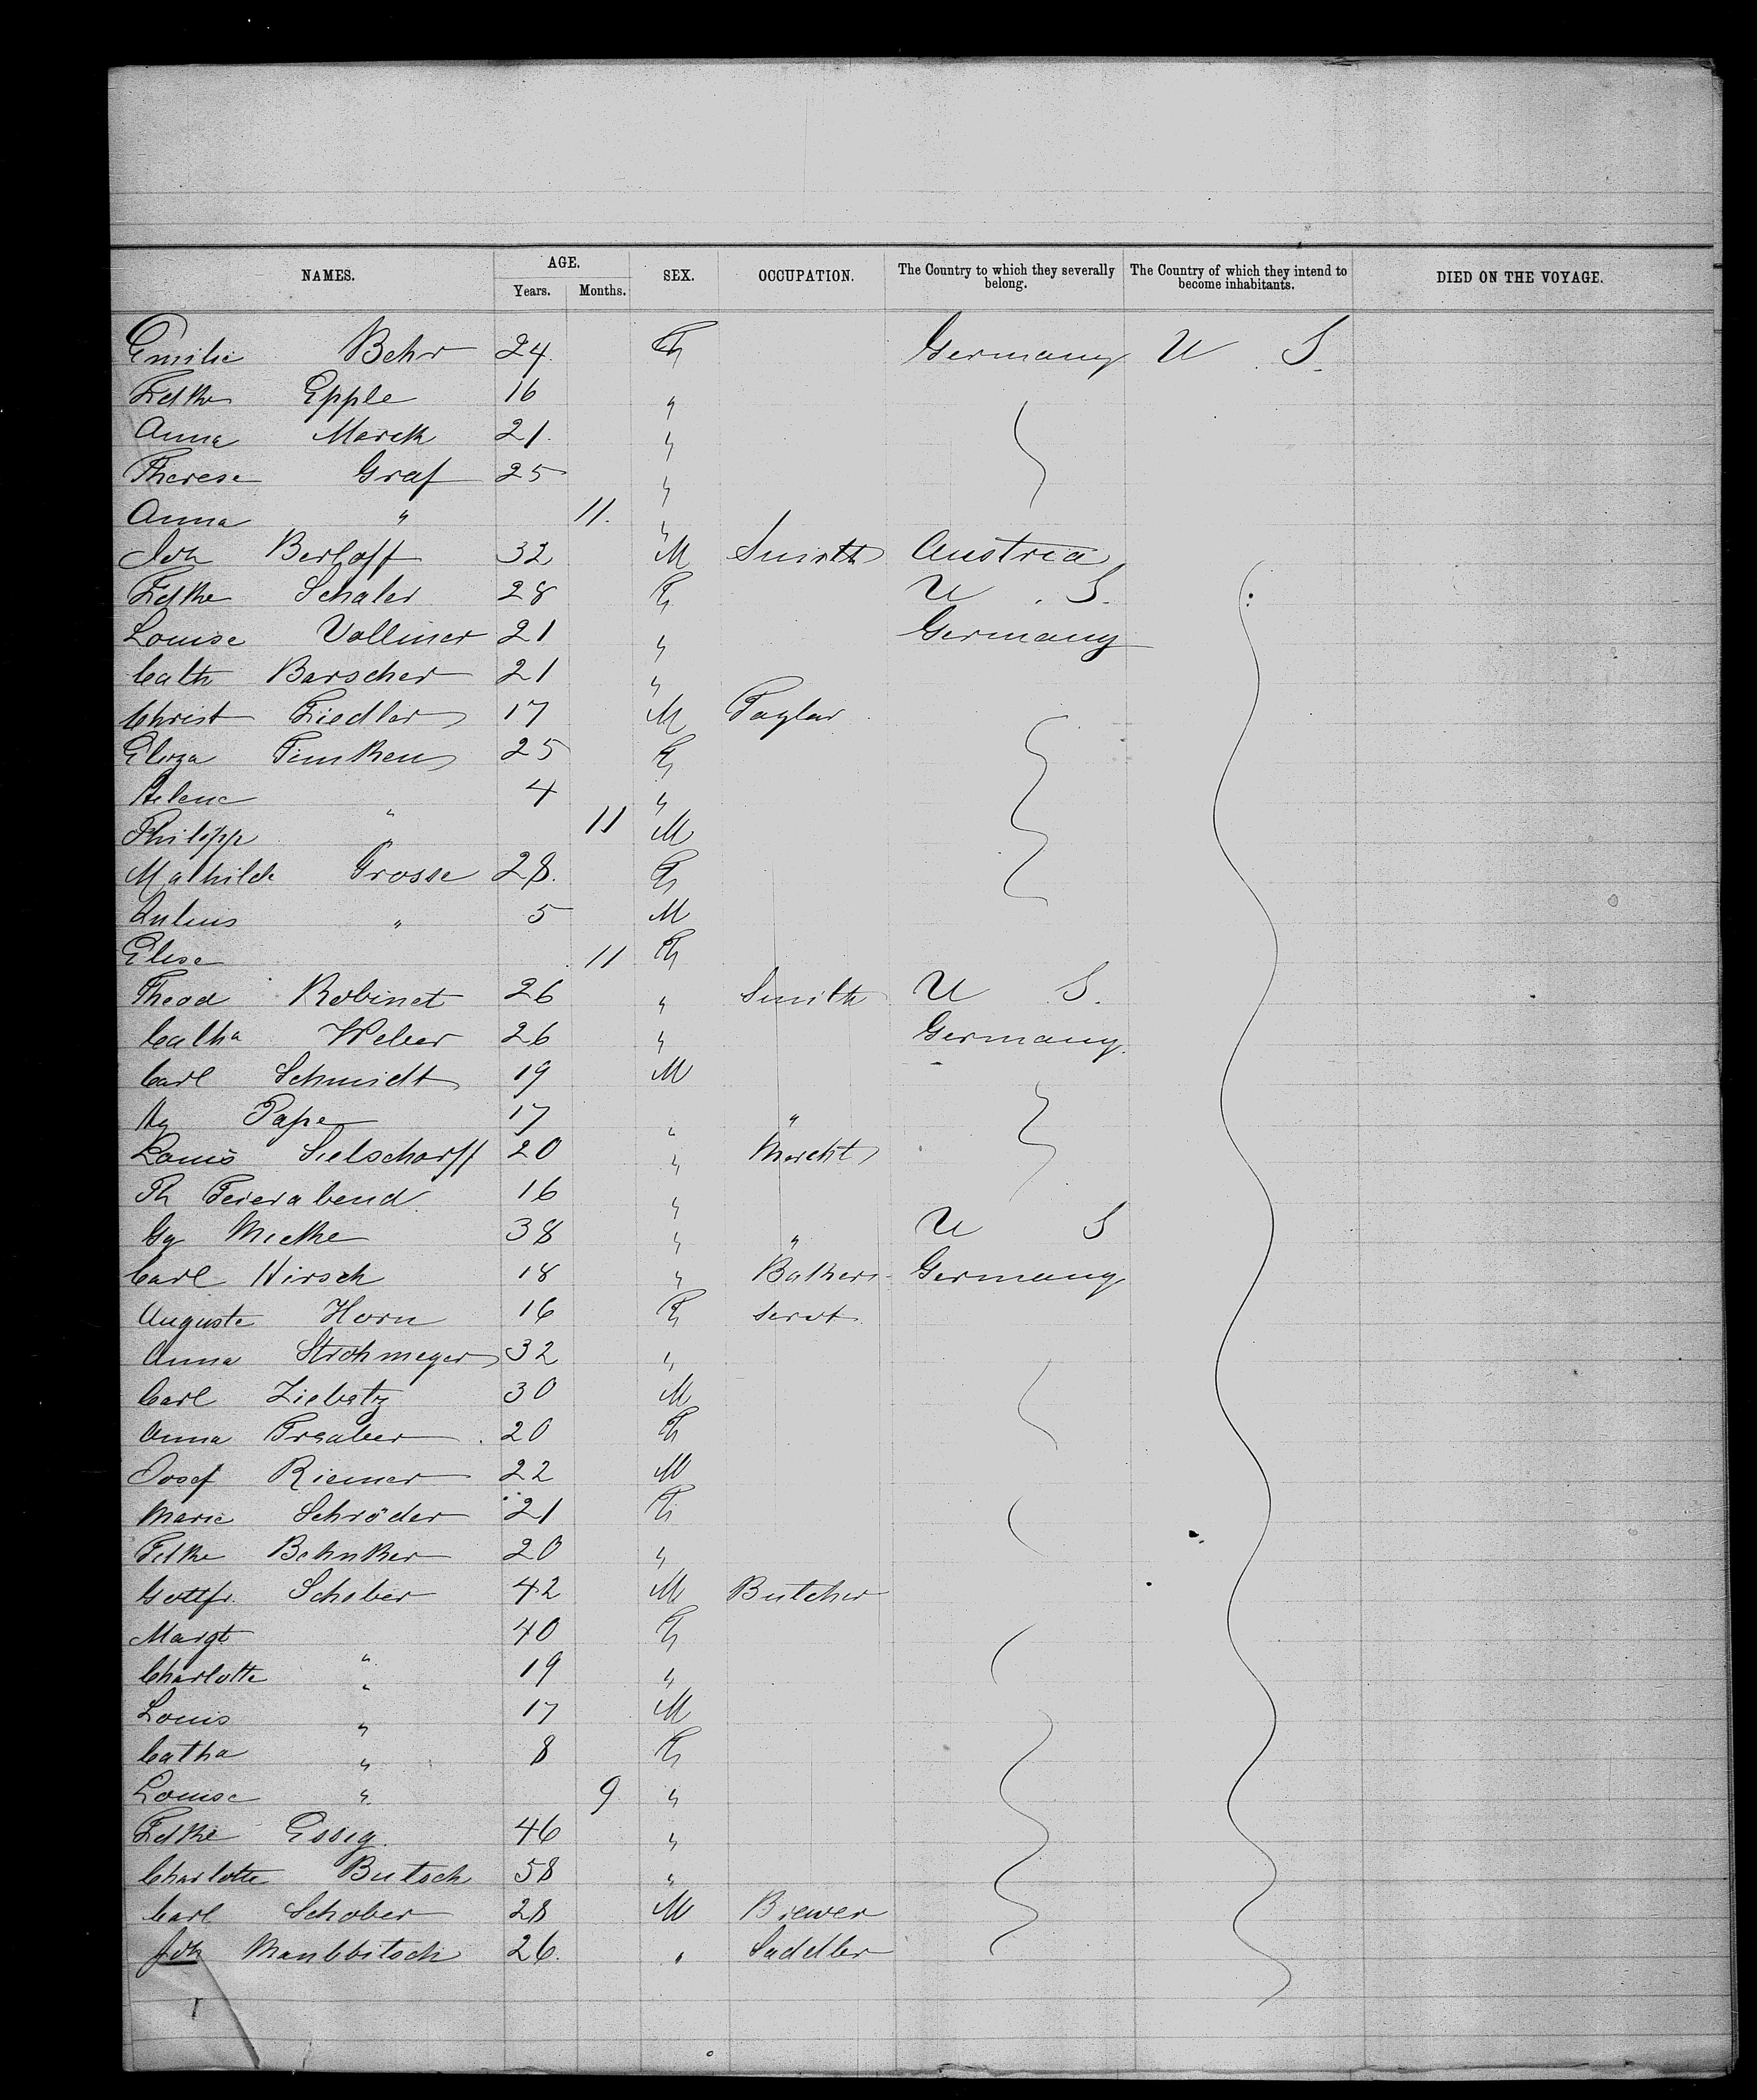 NAMES. AGE. SEX. OCCUPATION. The Country to which they severally belong. The Country of which they intend to become inhabitants. DIED ON THE VOYAGE.
Years. Months.
Emilie Behr 24 F Germany U S.
Fdke Epple 16 "
Anna Marck 21. "
Therese Graf 25 "
Anna " 11. "
Joh Berloff 32 M Smith Austria
Fdke Schaler 28 F U. S.
Louise Vollmer 21 " Germany
Cath Barscher 21 "
Christ Fiedler 17 M Taylor
Eliza Timken 25 F
Helene " 4 "
Philipp " 11 M
Mathilde Grosse 28. F
Julius " 5 M
Elise 11 F
Theod Robinet 26 " Smith U S.
Catha Weber 26 " Germany.
Carl Schmidt 19 M
Hy Pape 17 " "
Louis Sielscharff 20 " Mercht
Th Feierabend 16 "
Gg Mielke 38 " " U S
Carl Hirsch 18 " Bakers Germany
Auguste Horn 16 F Servt
Anna Strohmeyer 32 "
Carl Ziebatz 30 M
Anna Traber 20 F
Josef Riemer 22 M
Marie Schröder 21 F
Fdke Behnker 20 "
Gottfr. Schober 42 M Butcher
Margt " 40 F
Charlotte " 19 "
Louis " 17 M
Catha " 8 F
Louise " 9 "
Fdke Essig 46 "
Charlotte Butsch 58 "
Carl Schober 28 M Brewer
Joh 26. " Saddler